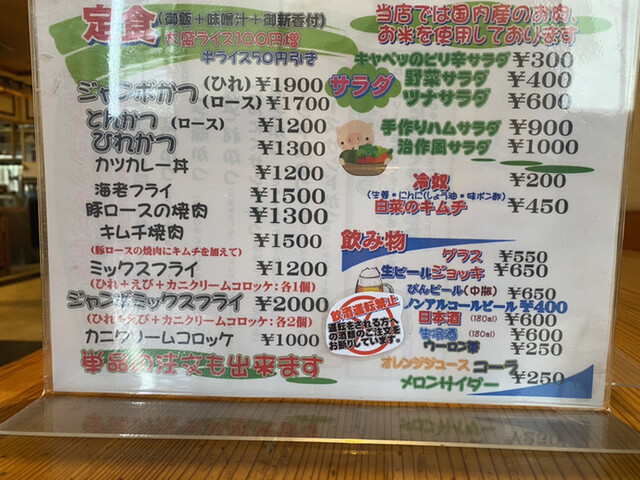 定食(御飯+味噌汁+御新香付)
大盛ライス100円増
半ライス50円引き
ジャンボかつ(ひれ) ¥1900
(ロース) ¥1700
とんかつ(ロース) ¥1200
ひれかつ ¥1300
カツカレー丼 ¥1200
海老フライ ¥1500
豚ロースの焼肉 ¥1300
キムチ焼肉 ¥1500
(豚ロースの焼肉にキムチを加えて)
ミックスフライ ¥1200
(ひれ+えび+カニクリームコロッケ:各1個)
ジャンボミックスフライ ¥2000
(ひれ+えび+カニクリームコロッケ:各2個)
カニクリームコロッケ ¥1000
単品の注文も出来ます
当店では国内産のお肉、
お米を使用しております
サラダ
キャベツのピリ辛サラダ ¥300
野菜サラダ ¥400
ツナサラダ ¥600
手作りハムサラダ ¥900
治作風サラダ ¥1000
冷奴 ¥200
(生姜・にんにくしょう油・味ポン酢)
白菜のキムチ ¥450
飲み物
生ビール グラス ¥550
ジョッキ ¥650
びんビール(中瓶) ¥650
ノンアルコールビール ¥400
日本酒(180ml) ¥600
生冷酒(180ml) ¥600
ウーロン茶 ¥250
オレンジジュース コーラ
メロンサイダー ¥250
飲酒運転禁止
運転をされる方へ
の酒類のご注文を
お断りしています。